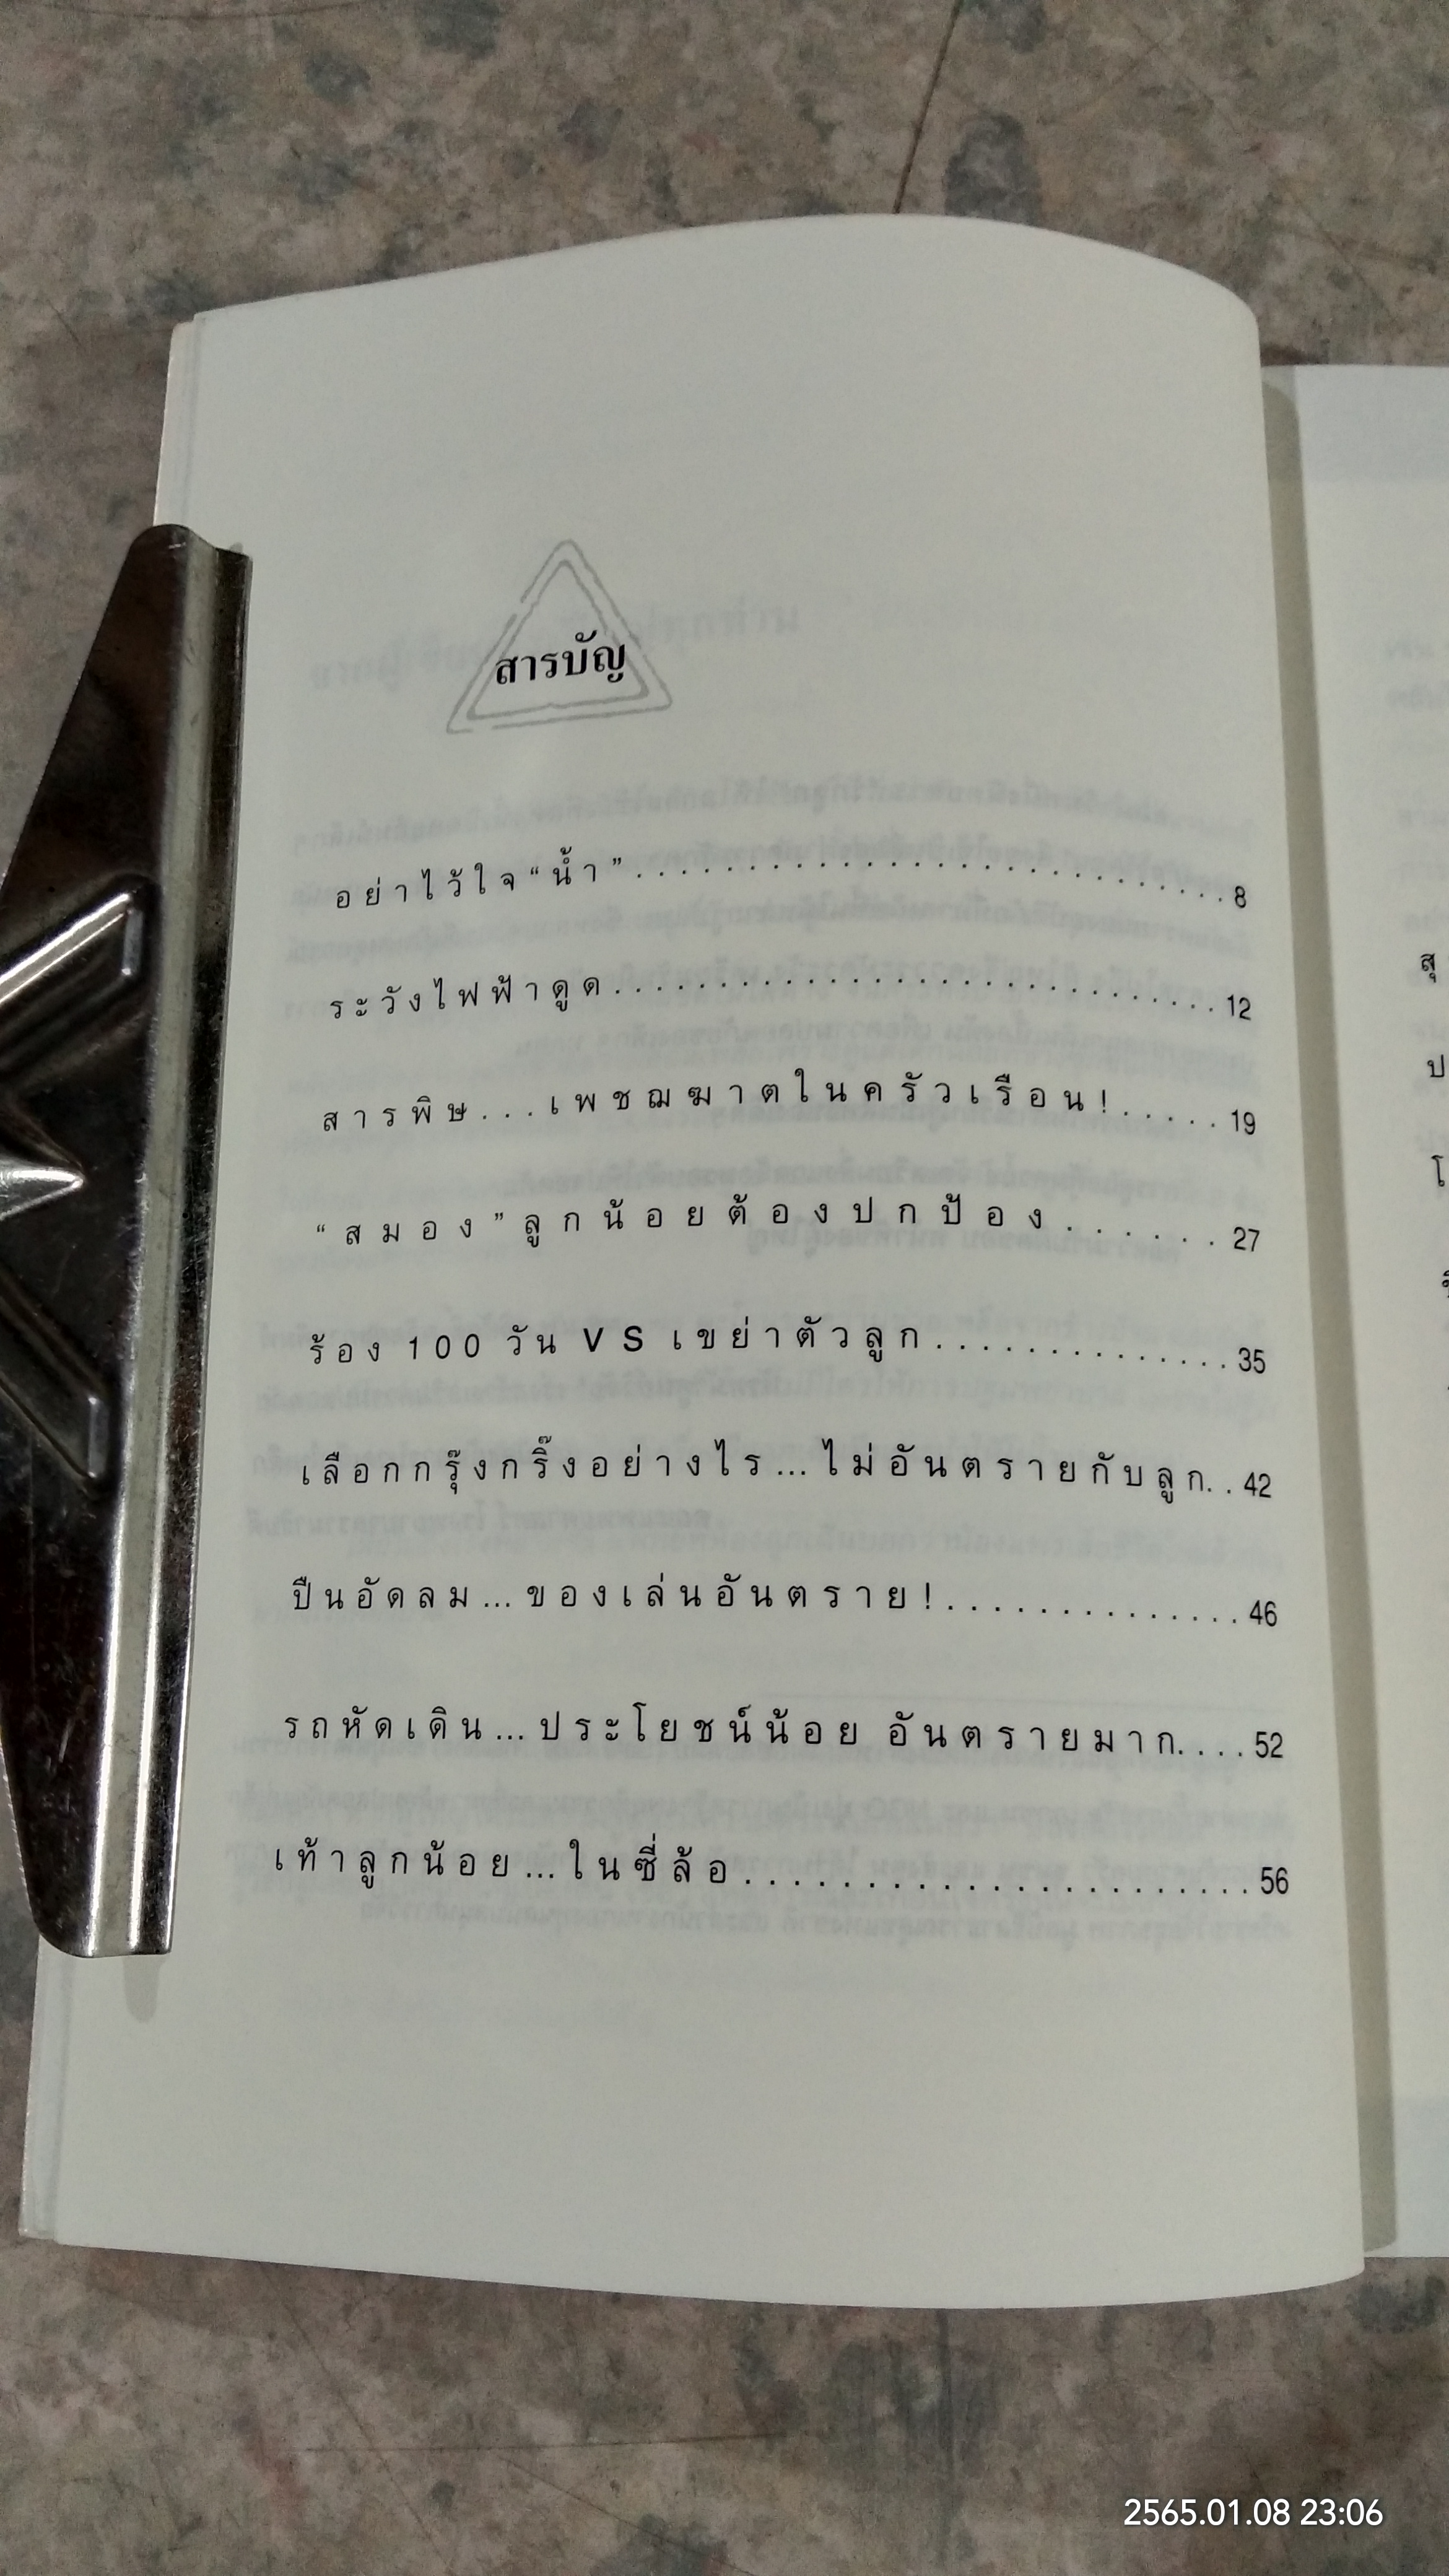 สารบัญ
อย่าไว้ใจ “น้ำ”............................8
ระวังไฟฟ้าดูด............................12
สารพิษ...เพชฌฆาตในครัวเรือน!.....19
“สมอง” ลูกน้อยต้องปกป้อง......27
ร้อง 100 วัน VS เขย่าตัวลูก..............35
เลือกกรุ๊งกริ๊งอย่างไร...ไม่อันตรายกับลูก..42
ปืนอัดลม...ของเล่นอันตราย!..............46
รถหัดเดิน...ประโยชน์น้อย อันตรายมาก....52
เท้าลูกน้อย...ในซี่ล้อ......................56
สุ
ป
โ
2565.01.08 23:06